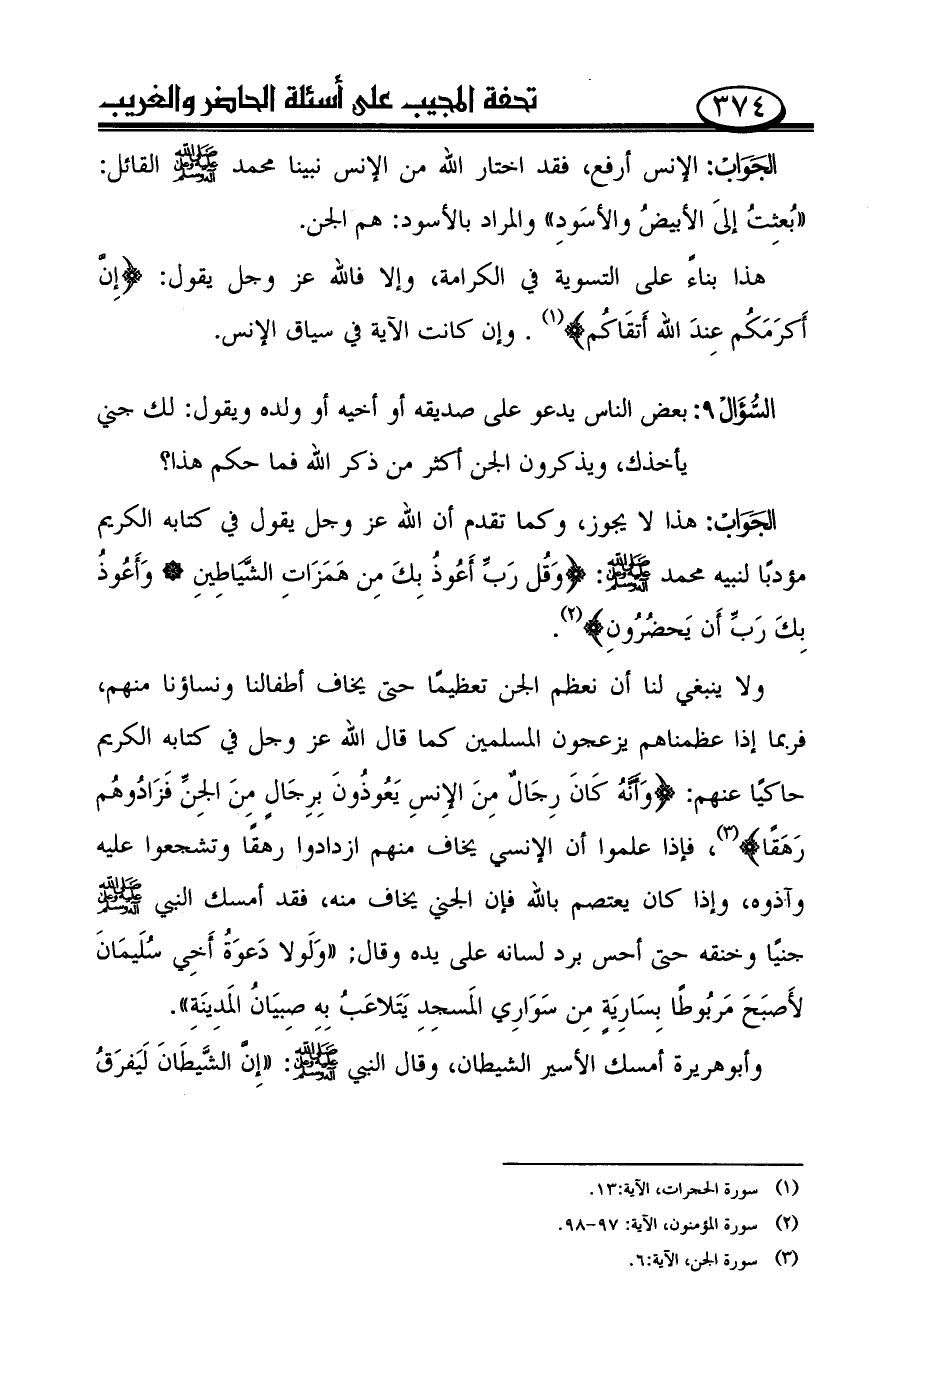 ٣٧٤
تحفة المجيب على أسئلة الحاضر والغريب
الجَوَابُ: الإنس أرفع، فقد اختار الله من الإنس نبينا محمد ﷺ القائل:
«بُعثِتُ إلىَ الأبيضُ والأسوَدِ» والمراد بالأسود: هم الجن.
هذا بناءً على التسوية في الكرامة، وإلا فالله عز وجل يقول: ﴿إِنَّ
أَكرَمَكُم عِندَ الله أَتقَاكُم﴾(١) . وإن كانت الآية في سياق الإنس.
السُّؤَالُ٩: بعض الناس يدعو على صديقه أو أخيه أو ولده ويقول: لك جني
يأخذك، ويذكرون الجن أكثر من ذكر الله فما حكم هذا؟
الجَوَابُ: هذا لا يجوز، وكما تقدم أن الله عز وجل يقول في كتابه الكريم
مؤدبًا لنبيه محمد ﷺ: ﴿وَقُل رَبِّ أَعُوذُ بِكَ مِن هَمَزَاتِ الشَّيَاطِينِ ۞ وَأَعُوذُ
بِكَ رَبِّ أَن يَحضُرُونِ﴾(٢).
ولا ينبغي لنا أن نعظم الجن تعظيمًا حتى يخاف أطفالنا ونساؤنا منهم،
فربما إذا عظمناهم يزعجون المسلمين كما قال الله عز وجل في كتابه الكريم
حاكيًا عنهم: ﴿وَأَنَّهُ كَانَ رِجَالٌ مِنَ الإِنسِ يَعُوذُونَ بِرِجَالٍ مِنَ الجِنِّ فَزَادُوهُم
رَهَقًا﴾(٣)، فإذا علموا أن الإنسي يخاف منهم ازدادوا رهقًا وتشجعوا عليه
وآذوه، وإذا كان يعتصم بالله فإن الجني يخاف منه، فقد أمسك النبي ﷺ
جنيًا وخنقه حتى أحس برد لسانه على يده وقال: «وَلَولا دَعوَةُ أَخِي سُلَيمَانَ
لأَصبَحَ مَربُوطًا بِسَارِيَةٍ مِن سَوَارِي المَسجِدِ يَتَلاعَبُ بِهِ صِبيَانُ المَدِينَةِ».
وأبوهريرة أمسك الأسير الشيطان، وقال النبي ﷺ: «إِنَّ الشَّيطَانَ لَيَفرَقُ
(١) سورة الحجرات، الآية:١٣.
(٢) سورة المؤمنون، الآية: ٩٧-٩٨.
(٣) سورة الجن، الآية:٦.